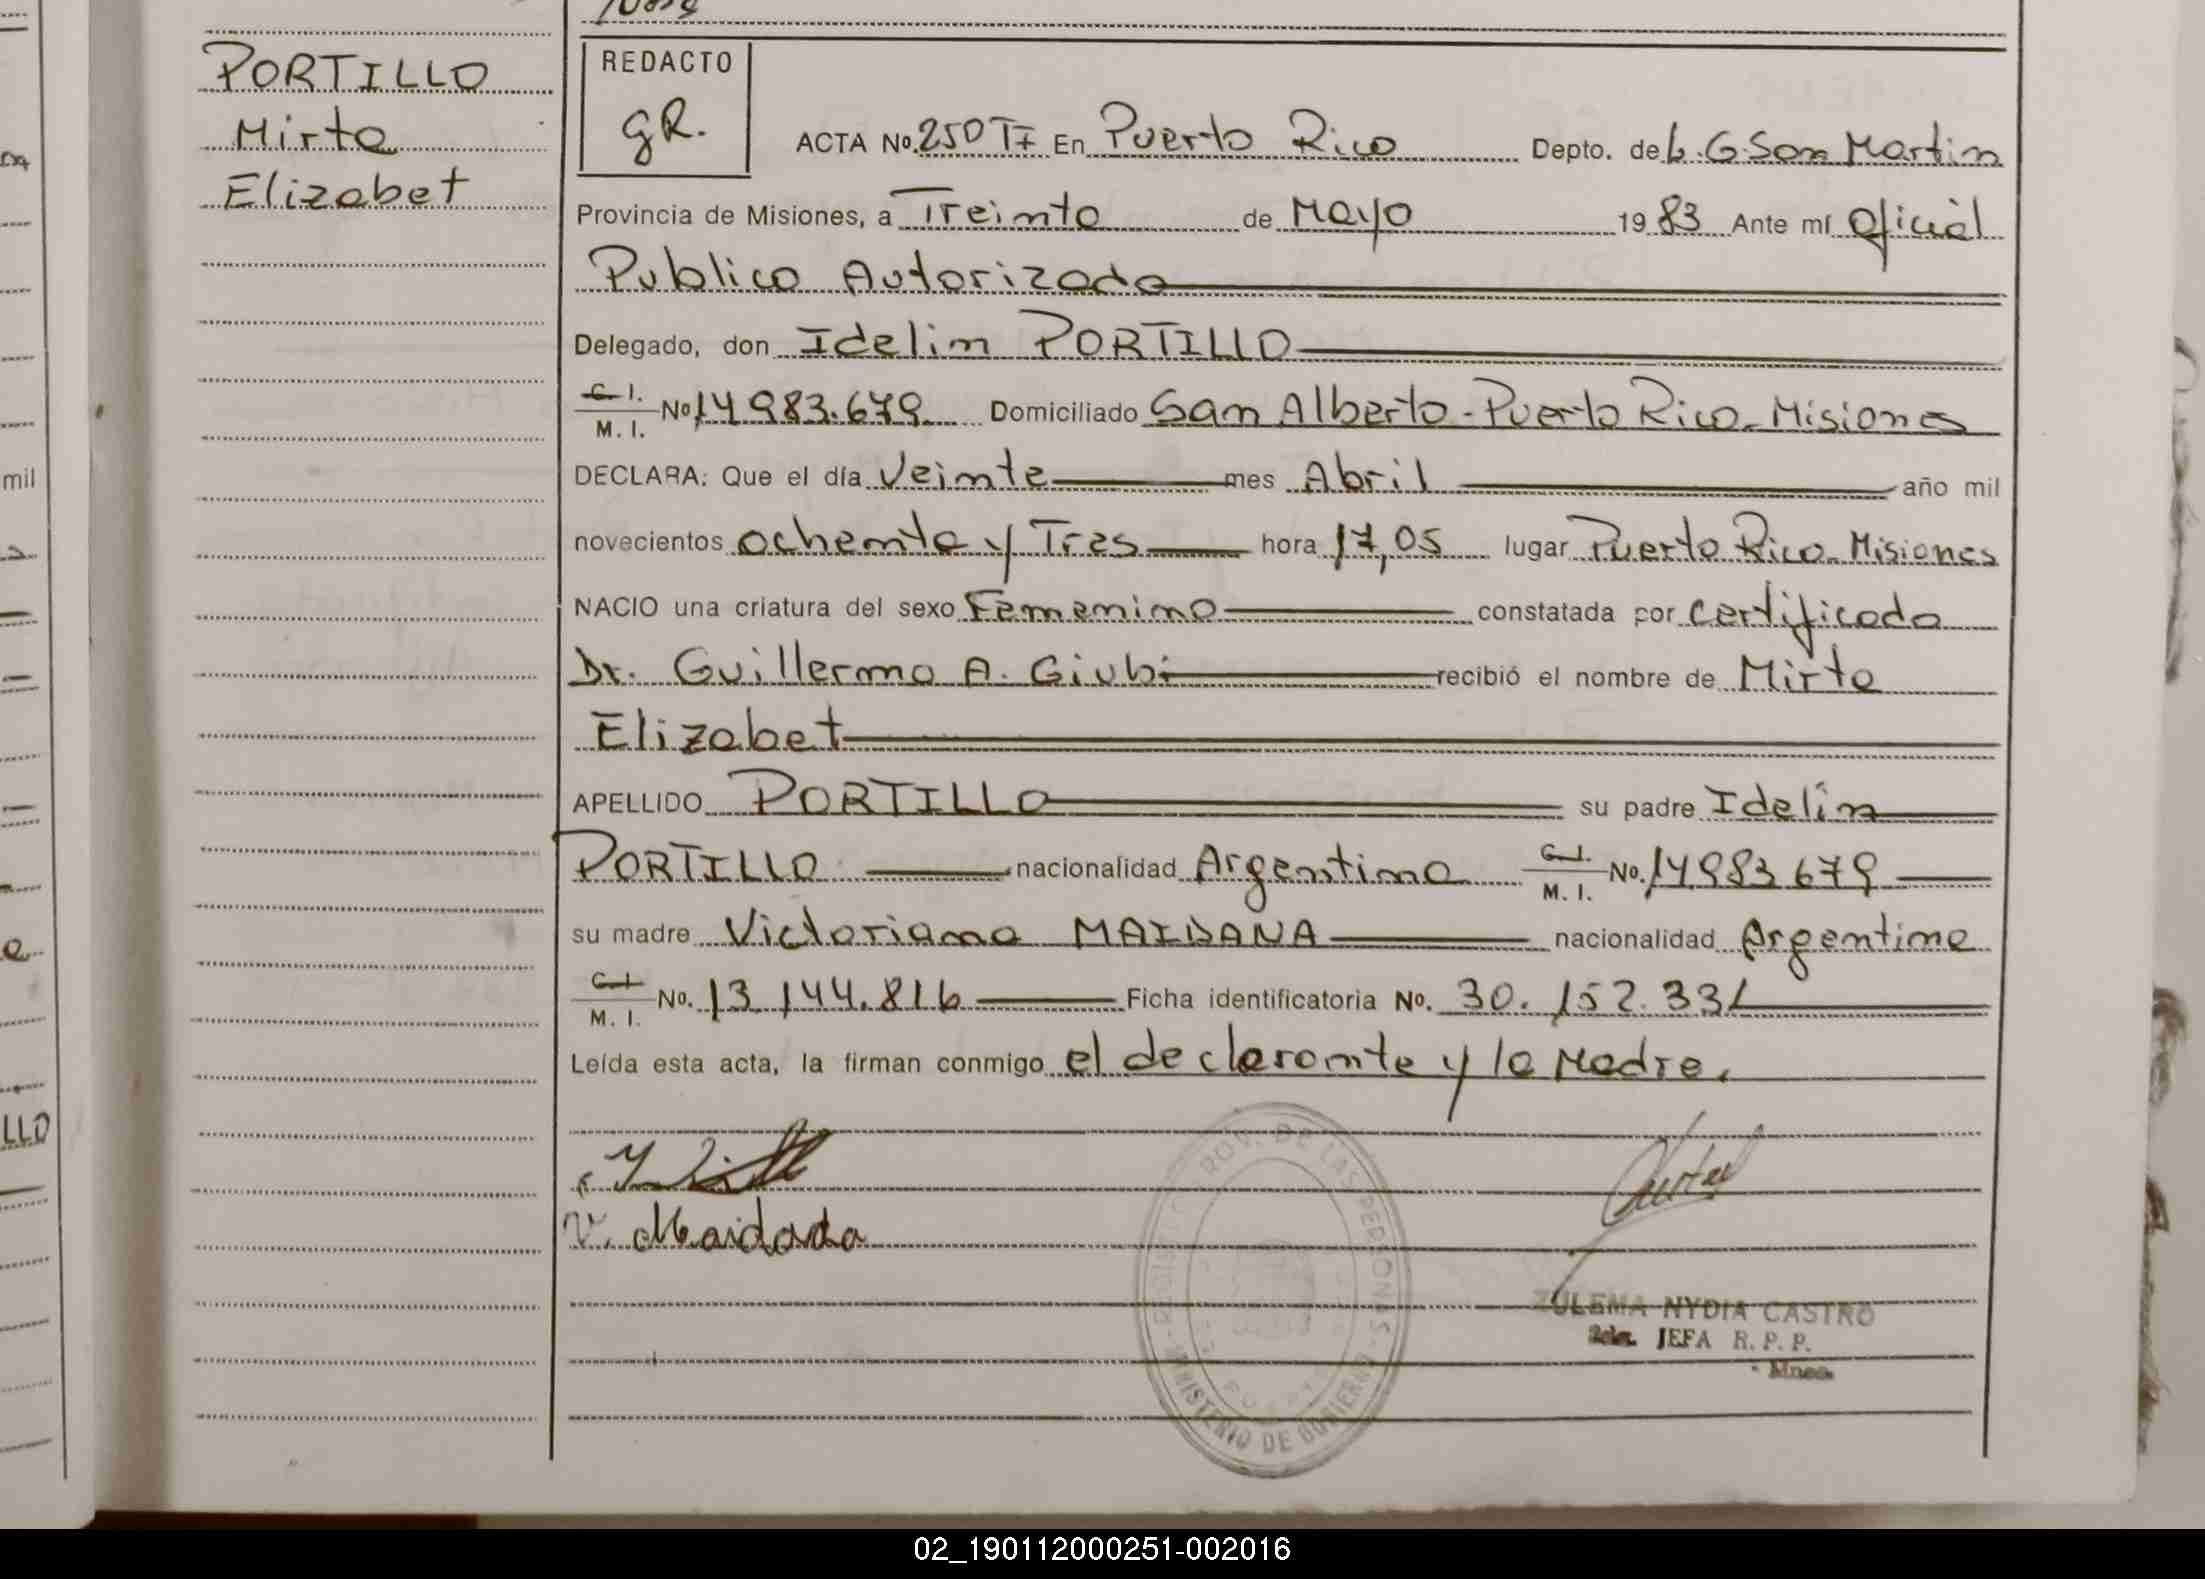 PORTILLO
Mirta
Elizabet
REDACTO
gR.
ACTA No. 250 T7 En Puerto Rico Depto. de L. G San Martin
Provincia de Misiones, a Treinta de Mayo 1983 Ante mí Oficial
Publico Autorizado
Delegado, don Idelin PORTILLO
C. I. M. I. No 14983.679 Domiciliado San Alberto - Puerto Rico - Misiones
DECLARA: Que el día Veinte mes Abril año mil
novecientos ochenta y Tres hora 17,05 lugar Puerto Rico - Misiones
NACIO una criatura del sexo Femenino constatada por certificado
Dr. Guillermo A. Giubi recibió el nombre de Mirta
Elizabet
APELLIDO PORTILLO su padre Idelin
PORTILLO nacionalidad Argentina C. I. M. I. No. 14983679
su madre Victoriana MAIDANA nacionalidad Argentina
C. I. M. I. No. 13.144.816 Ficha identificatoria No. 30.152.331
Leída esta acta, la firman conmigo el declarante y la Madre.
V. Maidada
REGISTRO PROV. DE LAS PERSONAS
MINISTERIO DE GOBIERNO
ZULEMA NYDIA CASTRO
JEFA R. P. P.
Mnes.
mil
LLO
02_190112000251-002016